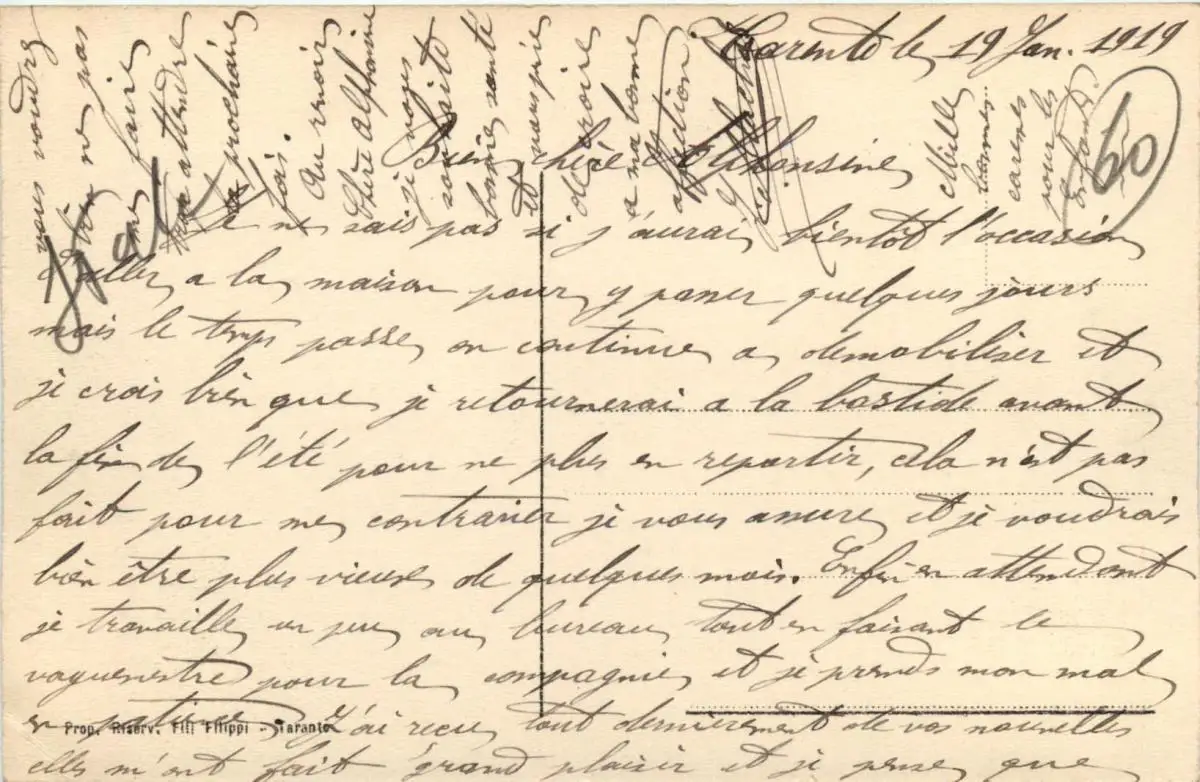 Tarente le 19 Jan. 1919
Bien chère Alphonsine
Je ne sais pas si j'aurai bientôt l'occasion
d'aller a la maison pour y passer quelques jours
mais le temps passe, on continue a demobiliser et
je crois bien que je retournerai a la bastide avant
la fin de l'été pour ne plus en repartir, cela n'est pas
fait pour me contrarier je vous assure et je voudrais
bien être plus vieux de quelques mois. Enfin en attendant
je travaille un peu au bureau tout en faisant le
vaguemestre pour la compagnie et je prends mon mal
en patience. J'ai reçu tout dernièrement de vos nouvelles
elles m'ont fait grand plaisir et je pense que
vous voudrez
bien ne pas
me faire
attendre
la prochaine
fois.
Au revoir
Chère Alphonsine
je vous
souhaite
bonne santé
et vous prie
de croire
a ma bonne
affection.
Mille
bonnes
caresses
pour les
enfants.
60
Prop. Riserv. Flli Filippi - Taranto